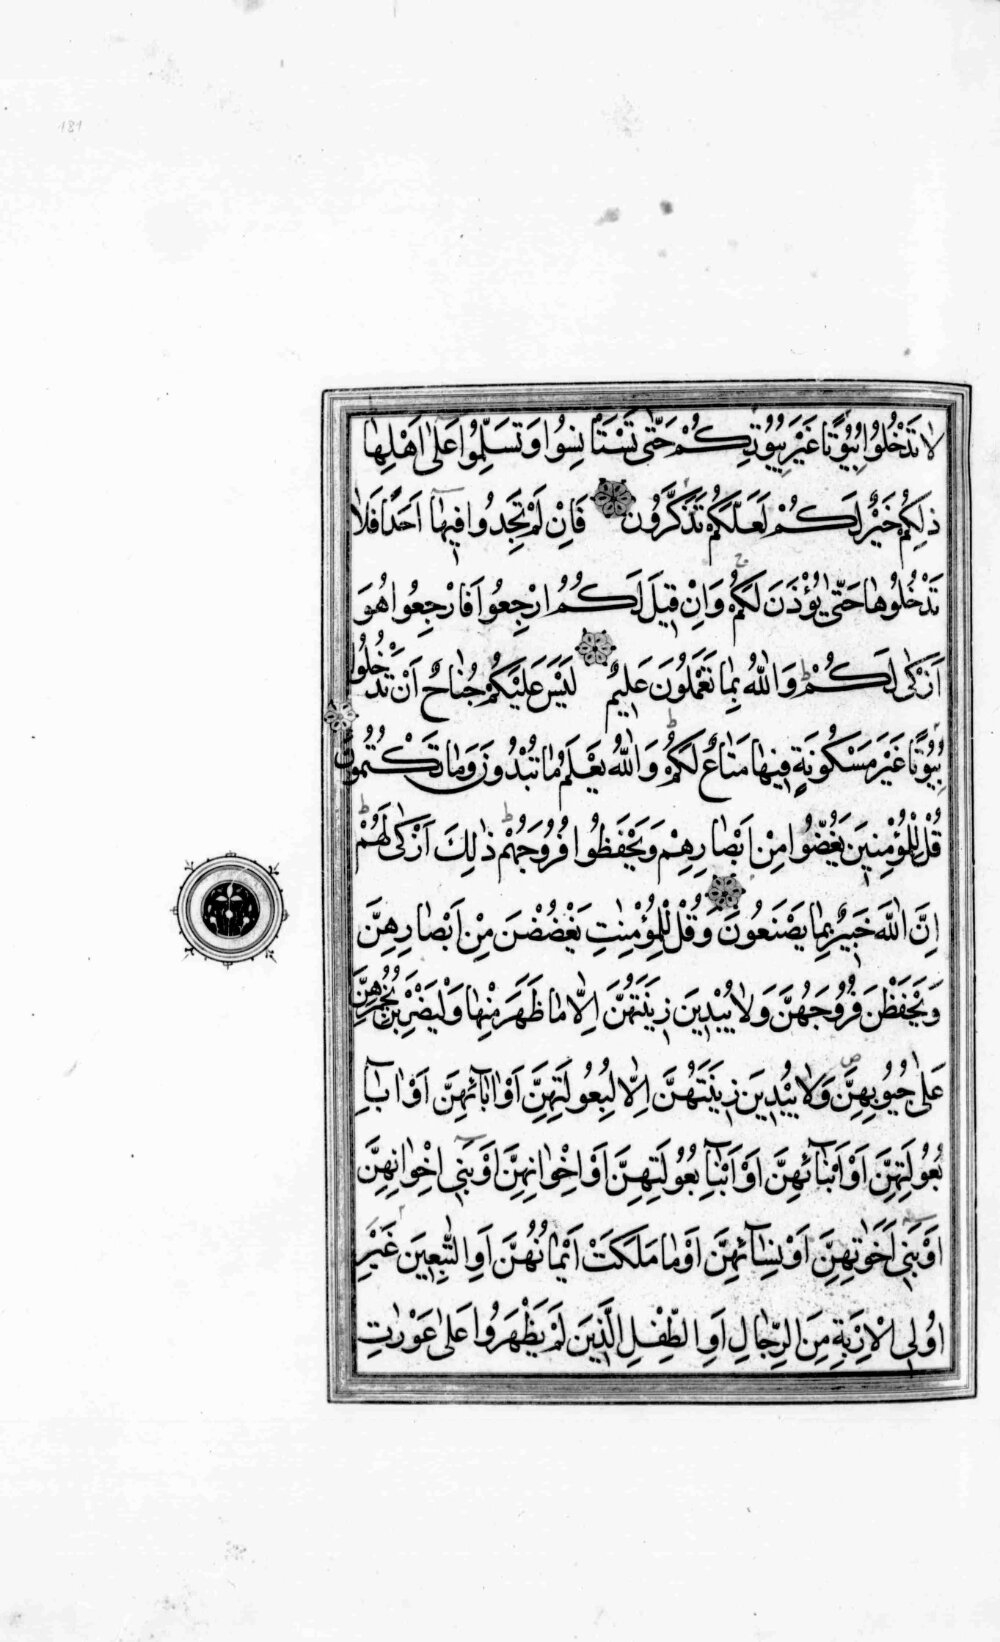 181
لَا تَدْخُلُوا بُيُوتًا غَيْرَ بُيُوتِكُمْ حَتّٰى تَسْتَأْنِسُوا وَتُسَلِّمُوا عَلٰٓى اَهْلِهَا
ذٰلِكُمْ خَيْرٌ لَكُمْ لَعَلَّكُمْ تَذَكَّرُونَ فَاِنْ لَمْ تَجِدُوا فِيهَٓا اَحَدًا فَلَا
تَدْخُلُوهَا حَتّٰى يُؤْذَنَ لَكُمْ وَاِنْ قِيلَ لَكُمُ ارْجِعُوا فَارْجِعُوا هُوَ
اَزْكٰى لَكُمْ وَاللّٰهُ بِمَا تَعْمَلُونَ عَلِيمٌ لَيْسَ عَلَيْكُمْ جُنَاحٌ اَنْ تَدْخُلُوا
بُيُوتًا غَيْرَ مَسْكُونَةٍ فِيهَا مَتَاعٌ لَكُمْ وَاللّٰهُ يَعْلَمُ مَا تُبْدُونَ وَمَا تَكْتُمُونَ
قُلْ لِلْمُؤْمِنِينَ يَغُضُّوا مِنْ اَبْصَارِهِمْ وَيَحْفَظُوا فُرُوجَهُمْ ذٰلِكَ اَزْكٰى لَهُمْ
اِنَّ اللّٰهَ خَبِيرٌ بِمَا يَصْنَعُونَ وَقُلْ لِلْمُؤْمِنٰتِ يَغْضُضْنَ مِنْ اَبْصَارِهِنَّ
وَيَحْفَظْنَ فُرُوجَهُنَّ وَلَا يُبْدِينَ زِينَتَهُنَّ اِلَّا مَا ظَهَرَ مِنْهَا وَلْيَضْرِبْنَ بِخُمُرِهِنَّ
عَلٰى جُيُوبِهِنَّ وَلَا يُبْدِينَ زِينَتَهُنَّ اِلَّا لِبُعُولَتِهِنَّ اَوْ اٰبَٓائِهِنَّ اَوْ اٰبَٓاءِ
بُعُولَتِهِنَّ اَوْ اَبْنَٓائِهِنَّ اَوْ اَبْنَٓاءِ بُعُولَتِهِنَّ اَوْ اِخْوَانِهِنَّ اَوْ بَنِٓى اِخْوَانِهِنَّ
اَوْ بَنِٓى اَخَوٰتِهِنَّ اَوْ نِسَٓائِهِنَّ اَوْ مَا مَلَكَتْ اَيْمَانُهُنَّ اَوِ التّٰبِعِينَ غَيْرِ
اُولِى الْاِرْبَةِ مِنَ الرِّجَالِ اَوِ الطِّفْلِ الَّذِينَ لَمْ يَظْهَرُوا عَلٰى عَوْرٰتِ